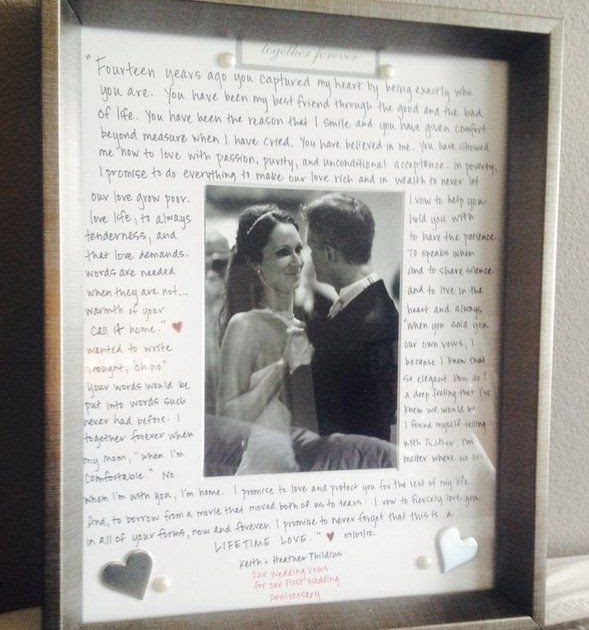 together forever
"Fourteen years ago you captured my heart by being exactly who
you are. You have been my best friend through the good and the bad
of life. You have been the reason that I smile and you have given comfort
beyond measure when I have cried. You have believed in me. You have showed
me how to love with passion, purity, and unconditional acceptance. In poverty,
I promise to do everything to make our love rich and in wealth to never let
our love grow poor. I vow to help you
love life, to always hold you with
tenderness, and to have the patience
that love demands. To speaks when
words are needed and to share silence
when they are not... and to live in the
warmth of your heart and always
call it home." ♥ "when you said you
wanted to write our own vows, I
thought, "oh no" because I knew that
your words would be so elegant. How do I
put into words such a deep feeling that I've
never had before. I knew we would be
together forever when I found myself telling
my mom, "when I'm with Heather, I'm
comfortable." No matter where we are
when I'm with you, I'm home. I promise to love and protect you for the rest of my life.
And, to borrow from a movie that moved both of us to tears: I vow to fiercely love you
in all of your forms, now and forever. I promise to never forget that this is a
LIFETIME LOVE." ♥ 07/07/12.
Keith + Heather Phildius
Our Wedding Vows
For Our First Wedding
Anniversary